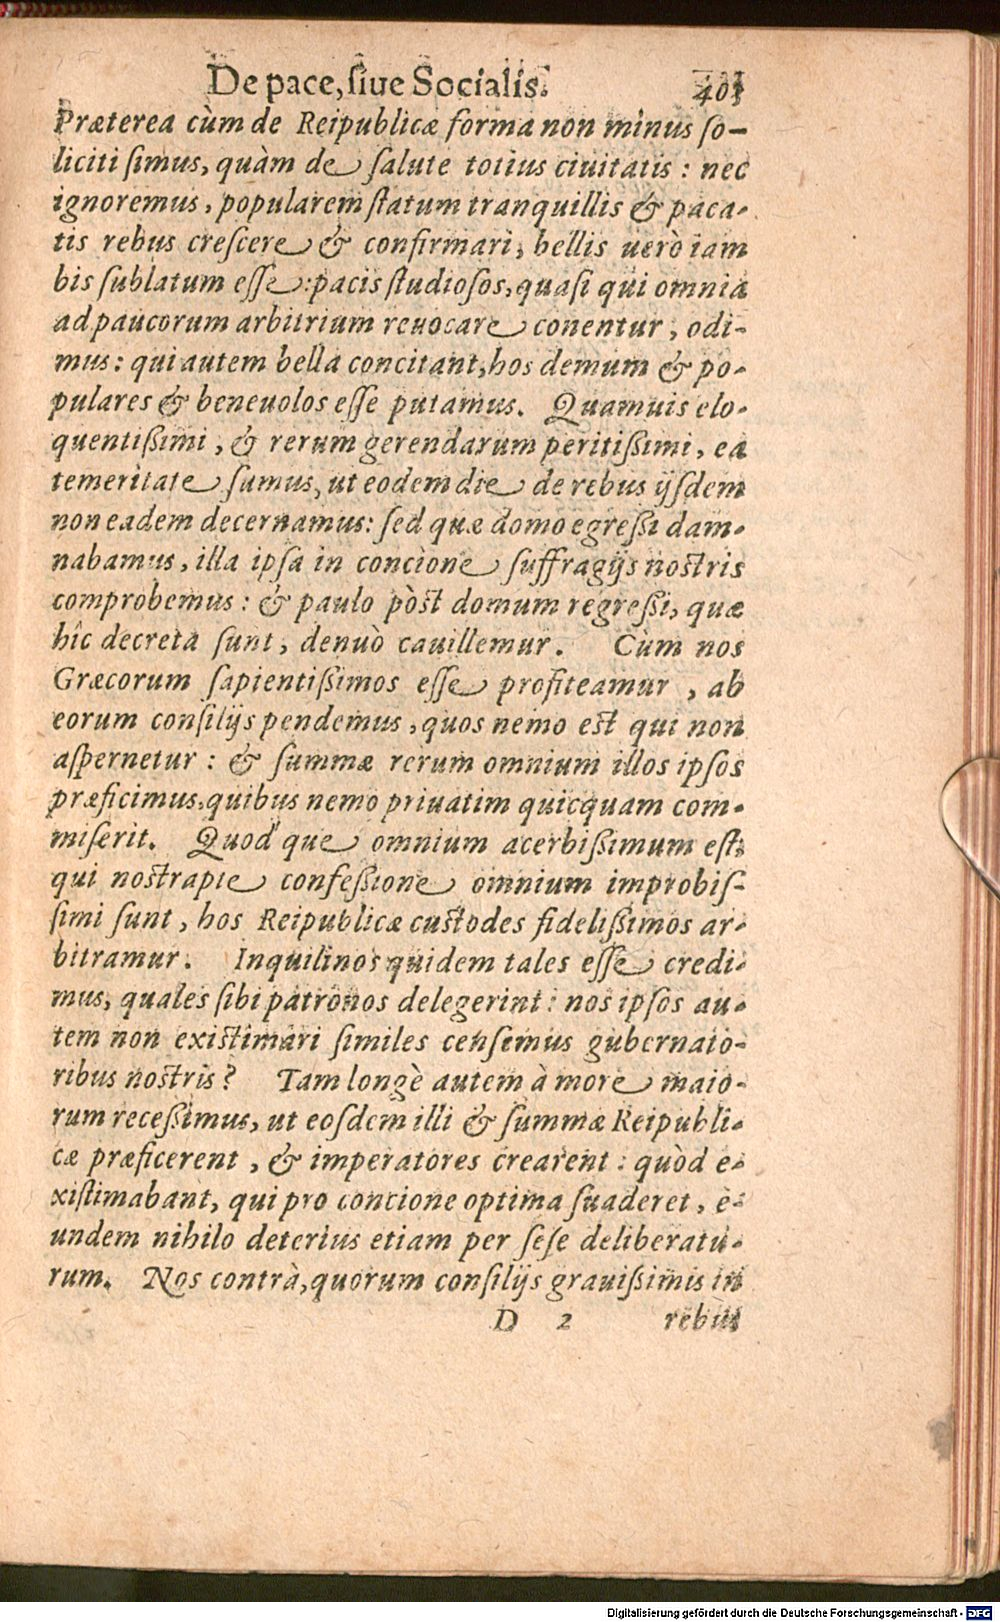 De pace, siue Socialis. 401
Præterea cùm de Reipublicæ forma non minus so-
liciti simus, quàm de salute totius ciuitatis: nec
ignoremus, popularem statum tranquillis & paca-
tis rebus crescere & confirmari, bellis uerò iam
bis sublatum esse: pacis studiosos, quasi qui omnia
ad paucorum arbitrium reuocare conentur, odi-
mus: qui autem bella concitant, hos demum & po-
pulares & beneuolos esse putamus. Quamuis elo-
quentißimi, & rerum gerendarum peritißimi, ea
temeritate sumus, ut eodem die de rebus ijsdem
non eadem decernamus: sed quæ domo egreßi dam-
nabamus, illa ipsa in concione suffragijs nostris
comprobemus: & paulo pòst domum regreßi, quæ
hîc decreta sunt, denuò cauillemur. Cùm nos
Græcorum sapientißimos esse profiteamur, ab
eorum consilijs pendemus, quos nemo est qui non
aspernetur: & summæ rerum omnium illos ipsos
præficimus, quibus nemo priuatim quicquam com-
miserit. Quod que omnium acerbißimum est,
qui nostrapte confeßione omnium improbis-
simi sunt, hos Reipublicæ custodes fidelißimos ar-
bitramur. Inquilinos quidem tales esse credi-
mus, quales sibi patronos delegerint: nos ipsos au-
tem non existimari similes censemus gubernato-
ribus nostris? Tam longè autem à more maio-
rum receßimus, ut eosdem illi & summæ Reipubli-
cæ præficerent, & imperatores crearent: quòd e-
xistimabant, qui pro concione optima suaderet, e-
undem nihilo deterius etiam per sese deliberatu-
rum. Nos contrà, quorum consilijs grauißimis in
D 2 rebus
Digitalisierung gefördert durch die Deutsche Forschungsgemeinschaft - DFG